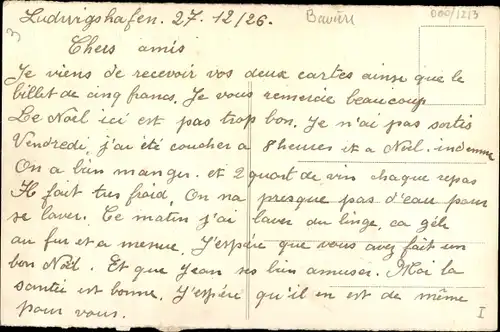 Ludwigshafen. 27. 12/26.
Bavière
000/1213
3
Chers amis
Je viens de recevoir vos deux cartes ainse que le
billet de cinq francs. Je vous remercie beaucoup
Le Noël ici est pas trop bon. Je n'ai pas sortis
Vendredi, j'ai été coucher a 8 heures et a Noël. indemne
On a bien manger. et 2 quart de vin chaque repas
Il fait tres froid, On na presque pas d'eau pour
se laver. Ce matin j'ai laver du linge, ca gèle
au fur et a mesure. J'espére que vous avez fait un
bon Noël. Et que Jean ses bien amuser. Moi la
santée est bonne. J'espére qu'il en est de même
pour vous.
I